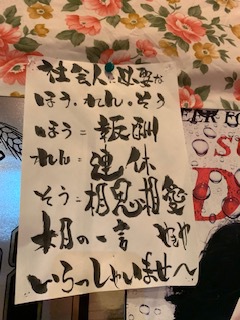 社会人に必要な
ほう・れん・そう
ほう=報酬
れん=連休
そう=相思相愛
本日の一言
いらっしゃいませ〜
ER
SU
D